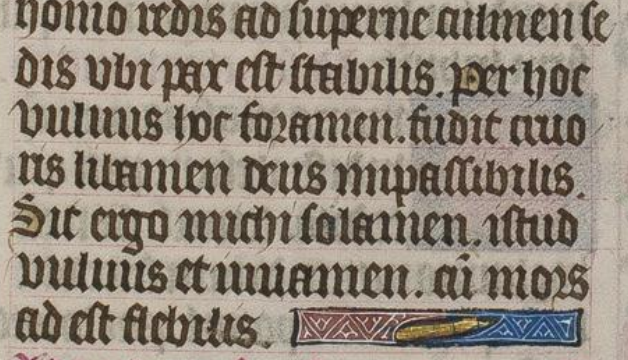 homo redis ad superne culmen se
dis vbi pax est stabilis. per hoc
vulnus hoc foramen. fudit cruo
ris libamen deus inpassibilis.
Sit ergo michi solamen. istud
vulnus et iuuamen. cū mors
ad est flebilis.